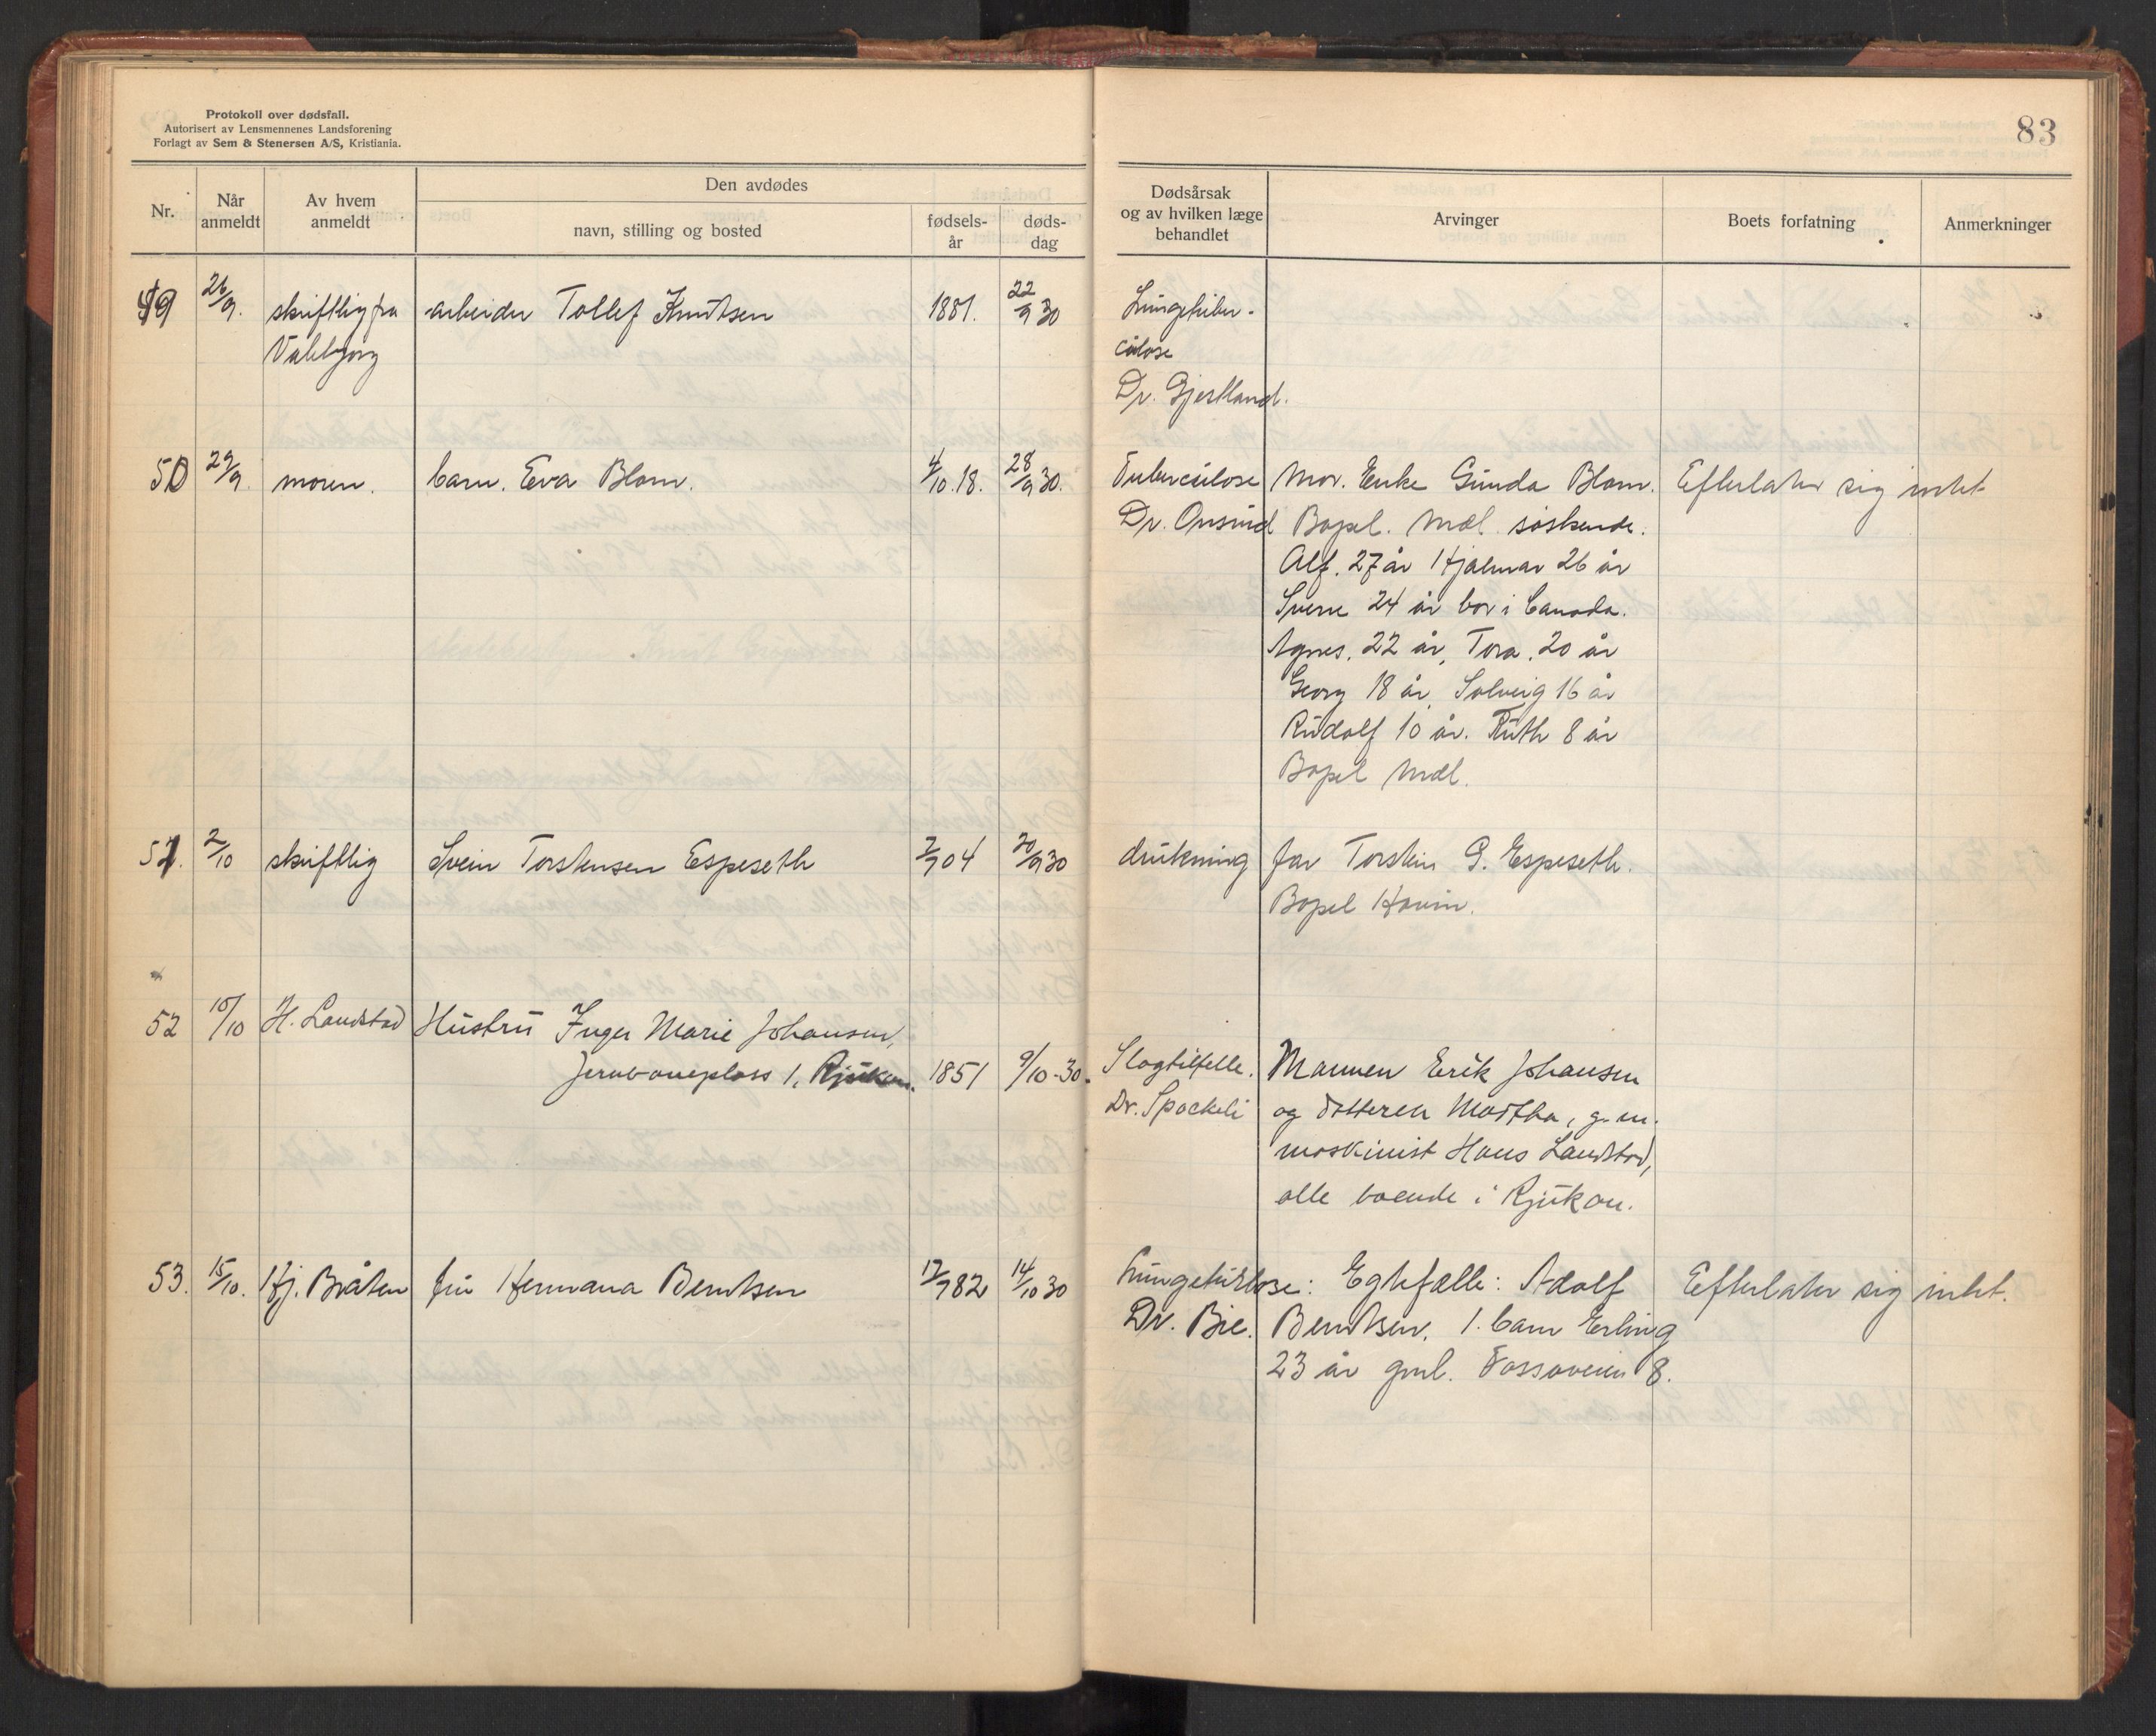 Protokoll over dødsfall.
Autorisert av Lensmennenes Landsforening
Forlagt av Sem & Stenersen A/S, Kristiania.
83
Nr.
Når anmeldt
Av hvem anmeldt
Den avdødes
navn, stilling og bosted
fødsels-år
døds-dag
Dødsårsak
og av hvilken læge
behandlet
Arvinger
Boets forfatning
Anmerkninger
49 26/9. skriftlig fra arbeider Tollef Knutsen 1881. 22/9 30 Lungetuber-
culose
Dr. Gjestland.
50 29/9. moren. barn. Eva Blom. 4/10.18. 28/9 30. Tuberculose Mor. Enke Gunda Blom. Efterlater sig intet
Dr. Onsrud Bopel. Mæl. søskende.
Alf. 27 år Hjalmar 26 år
Sverre 24 år bor i Canada.
Agnes. 22 år, Tora. 20 år
Georg 18 år, Solveig 16 år
Rudolf 10 år. Ruth 8 år
Bopel Mæl.
51. 2/10 skriftlig Svein Torstensen Espeseth 2/9 04 20/9 30 drukning far Torstein G. Espeseth.
Bopel Hovin.
52 10/10 H. Landstad Hustru Inger Marie Johansen,
Jernbaneplass 1, Rjukan. 1851 9/10-30. Slagtilfelle. Mannen Erik Johansen
Dr. Spockeli og datteren Martha, g. m.
maskinist Hans Landstad,
alle boende i Rjukan.
53. 15/10. Hj. Bråten fru Hermana Berntsen 12/9 82 14/10 30 Lungetuberklose: Egtefælle: Adolf Efterlater sig intet.
Dr. Bie. Berntsen. 1. barn Erling
23 år gml. Fossoveien 8.